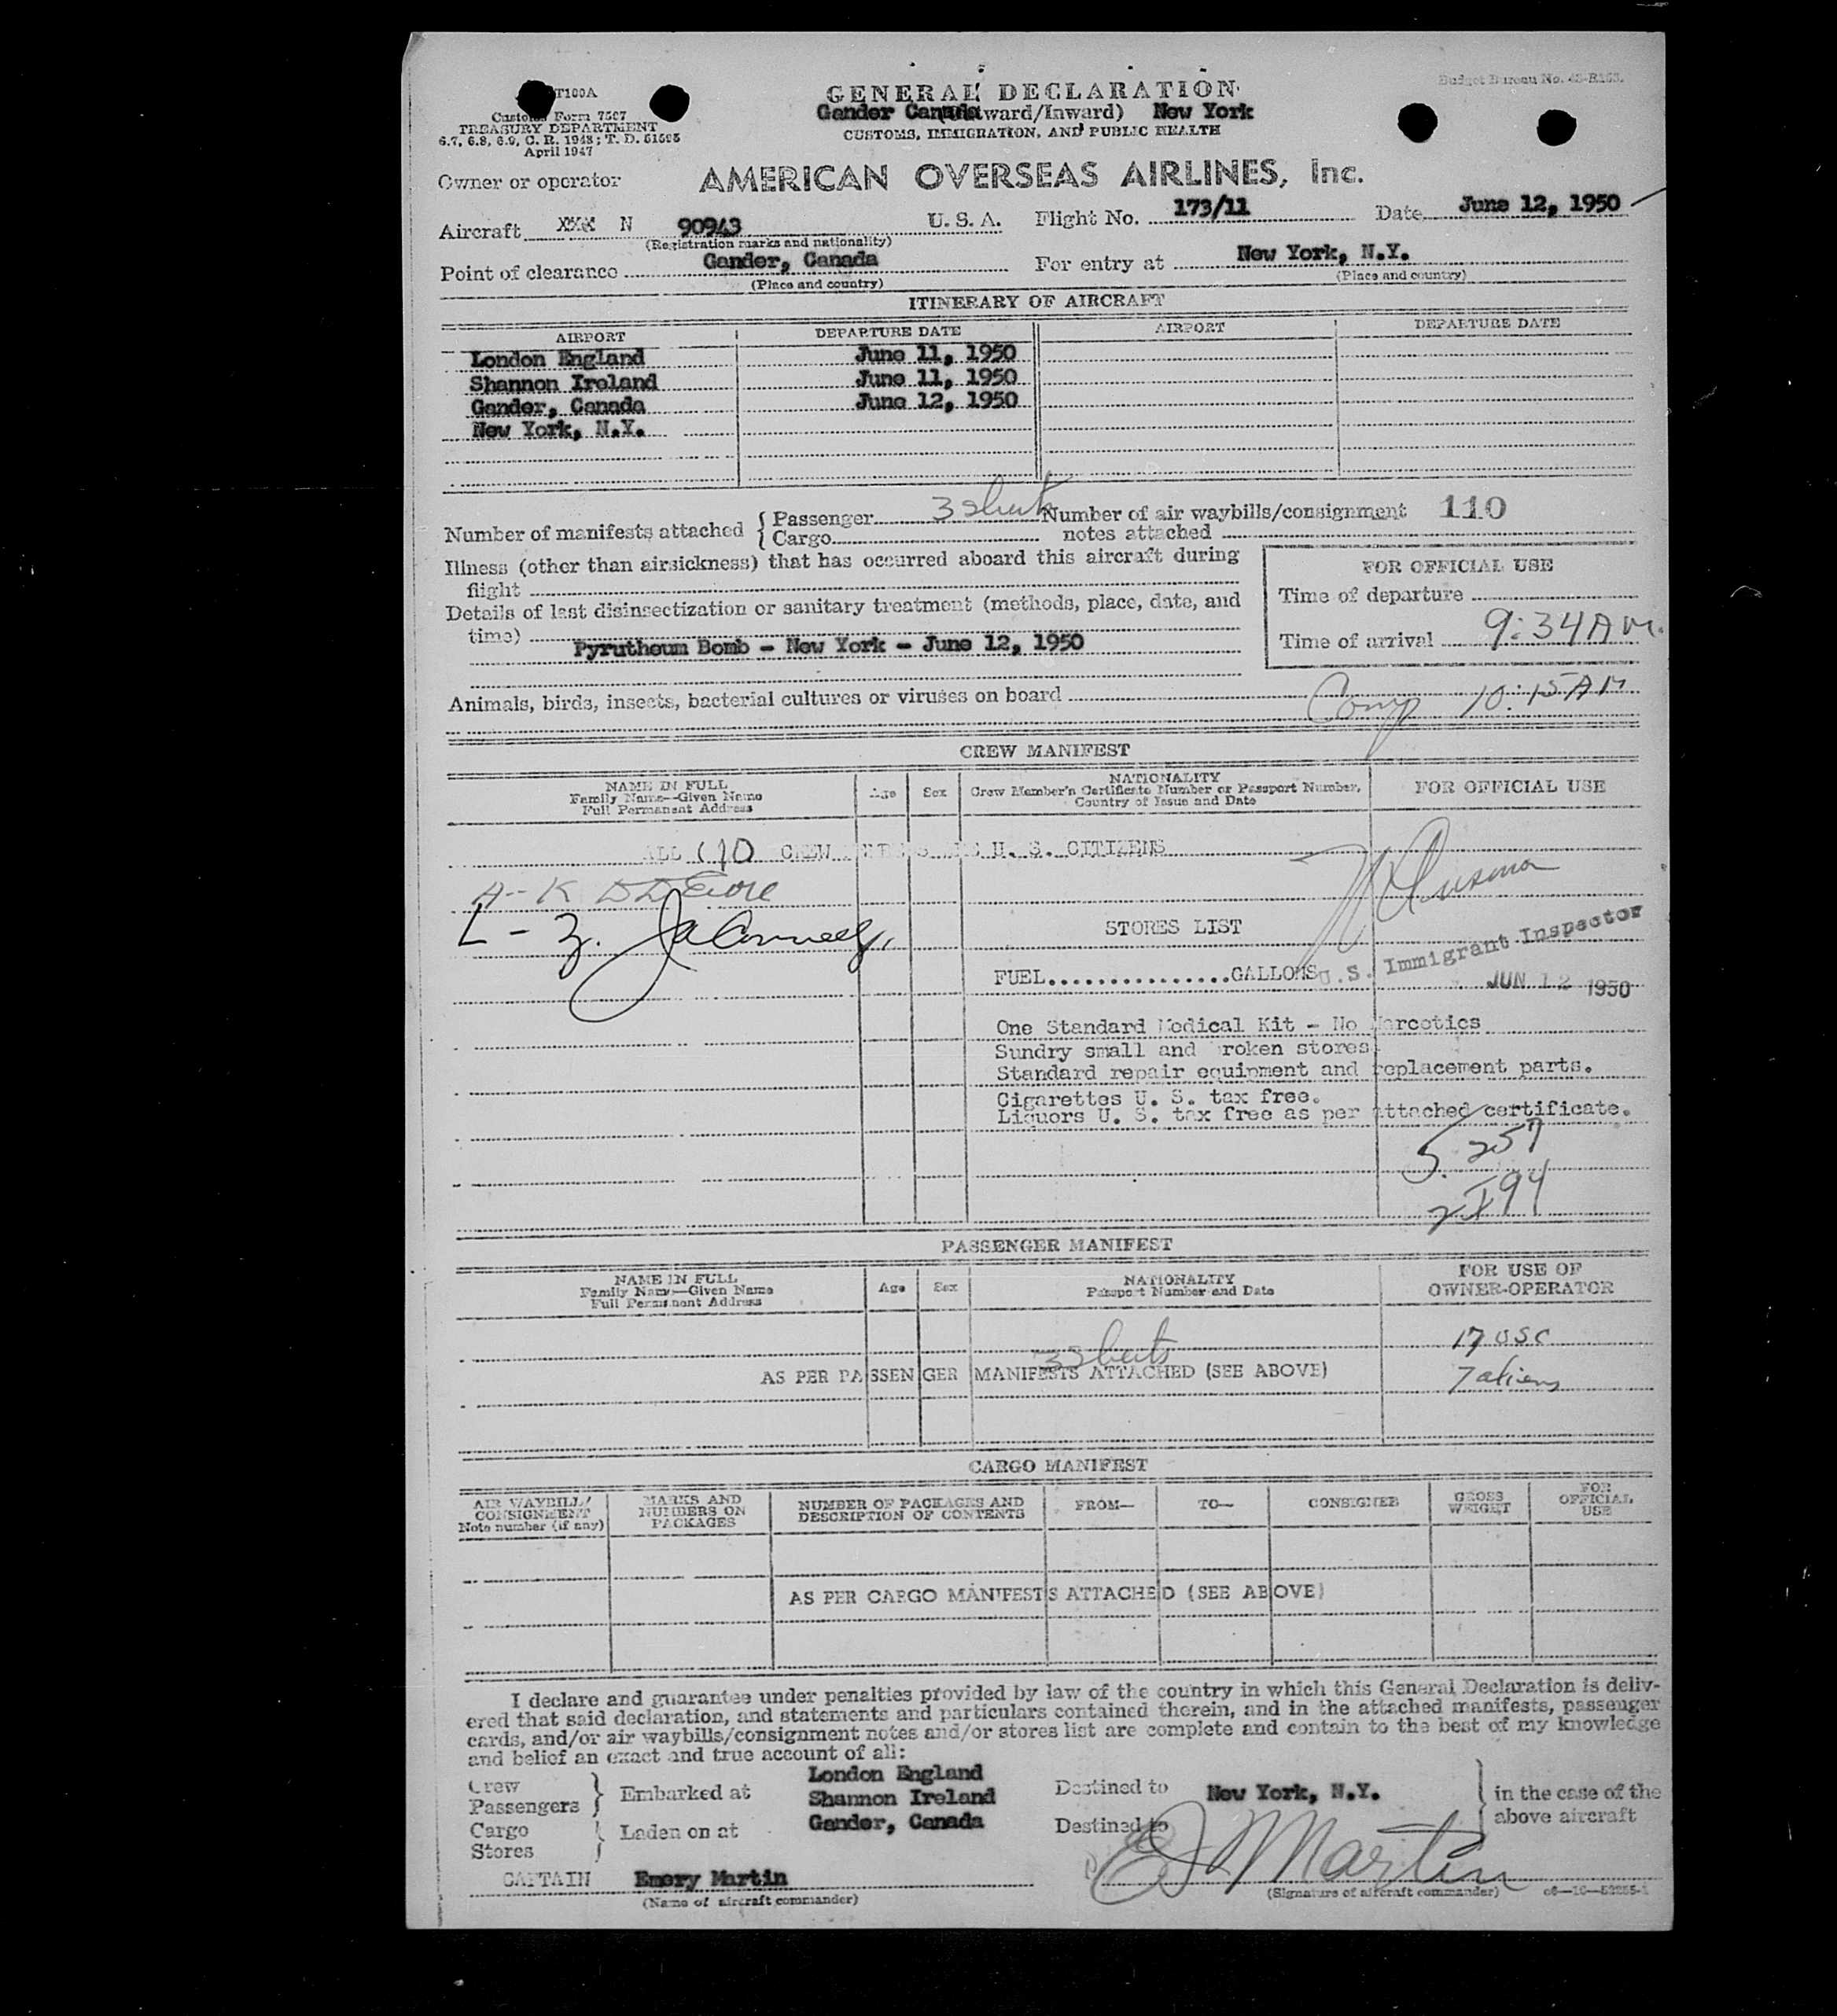 T100A
Customs Form 7507
TREASURY DEPARTMENT
6.7, 6.8, 6.9, C. R. 1943; T. D. 51595
April 1947
Budget Bureau No. 43-R153.
GENERAL DECLARATION
Gander Canada ward/Inward) New York
CUSTOMS, IMMIGRATION, AND PUBLIC HEALTH
Owner or operator AMERICAN OVERSEAS AIRLINES, Inc.
Aircraft XXX N 90943 U. S. A. Flight No. 173/11 Date June 12, 1950
(Registration marks and nationality)
Point of clearance Gander, Canada For entry at New York, N.Y.
(Place and country) (Place and country)
ITINERARY OF AIRCRAFT
AIRPORT DEPARTURE DATE AIRPORT DEPARTURE DATE
London England June 11, 1950
Shannon Ireland June 11, 1950
Gander, Canada June 12, 1950
New York, N.Y.
Number of manifests attached { Passenger 3 sheets Number of air waybills/consignment 110
{ Cargo notes attached
Illness (other than airsickness) that has occurred aboard this aircraft during
flight
Details of last disinsectization or sanitary treatment (methods, place, date, and
time)
Pyrutheum Bomb - New York - June 12, 1950
FOR OFFICIAL USE
Time of departure
Time of arrival 9:34 AM.
Animals, birds, insects, bacterial cultures or viruses on board
Comp 10:15 AM
CREW MANIFEST
NAME IN FULL
Family Name--Given Name
Full Permanent Address
Age Sex
NATIONALITY
Crew Member's Certificate Number or Passport Number,
Country of Issue and Date
FOR OFFICIAL USE
ALL (10 CREW U. S. CITIZENS
A-- K
L - 3.
STORES LIST
FUEL...............GALLONS
U.S. Immigrant Inspector
JUN 12 1950
One Standard Medical Kit - No Narcotics
Sundry small and roken stores
Standard repair equipment and replacement parts.
Cigarettes U. S. tax free.
Liquors U. S. tax free as per attached certificate.
5 257
94
PASSENGER MANIFEST
NAME IN FULL
Family Name—Given Name
Full Permanent Address
Age Sex
NATIONALITY
Passport Number and Date
FOR USE OF
OWNER-OPERATOR
17 USC
3 Sheets
AS PER PASSENGER MANIFESTS ATTACHED (SEE ABOVE)
7 aliens
CARGO MANIFEST
AIR WAYBILL/
CONSIGNMENT
Note number (if any)
MARKS AND
NUMBERS ON
PACKAGES
NUMBER OF PACKAGES AND
DESCRIPTION OF CONTENTS
FROM— TO— CONSIGNEE
GROSS
WEIGHT
FOR
OFFICIAL
USE
AS PER CARGO MANIFESTS ATTACHED (SEE ABOVE)
I declare and guarantee under penalties provided by law of the country in which this General Declaration is deliv-
ered that said declaration, and statements and particulars contained therein, and in the attached manifests, passenger
cards, and/or air waybills/consignment notes and/or stores list are complete and contain to the best of my knowledge
and belief an exact and true account of all:
Crew
Passengers } Embarked at
Cargo
Stores } Laden on at
London England
Shannon Ireland
Gander, Canada
Destined to New York, N.Y.
Destined to
} in the case of the
above aircraft
E J Martin
CAPTAIN Emery Martin
(Name of aircraft commander) (Signature of aircraft commander)